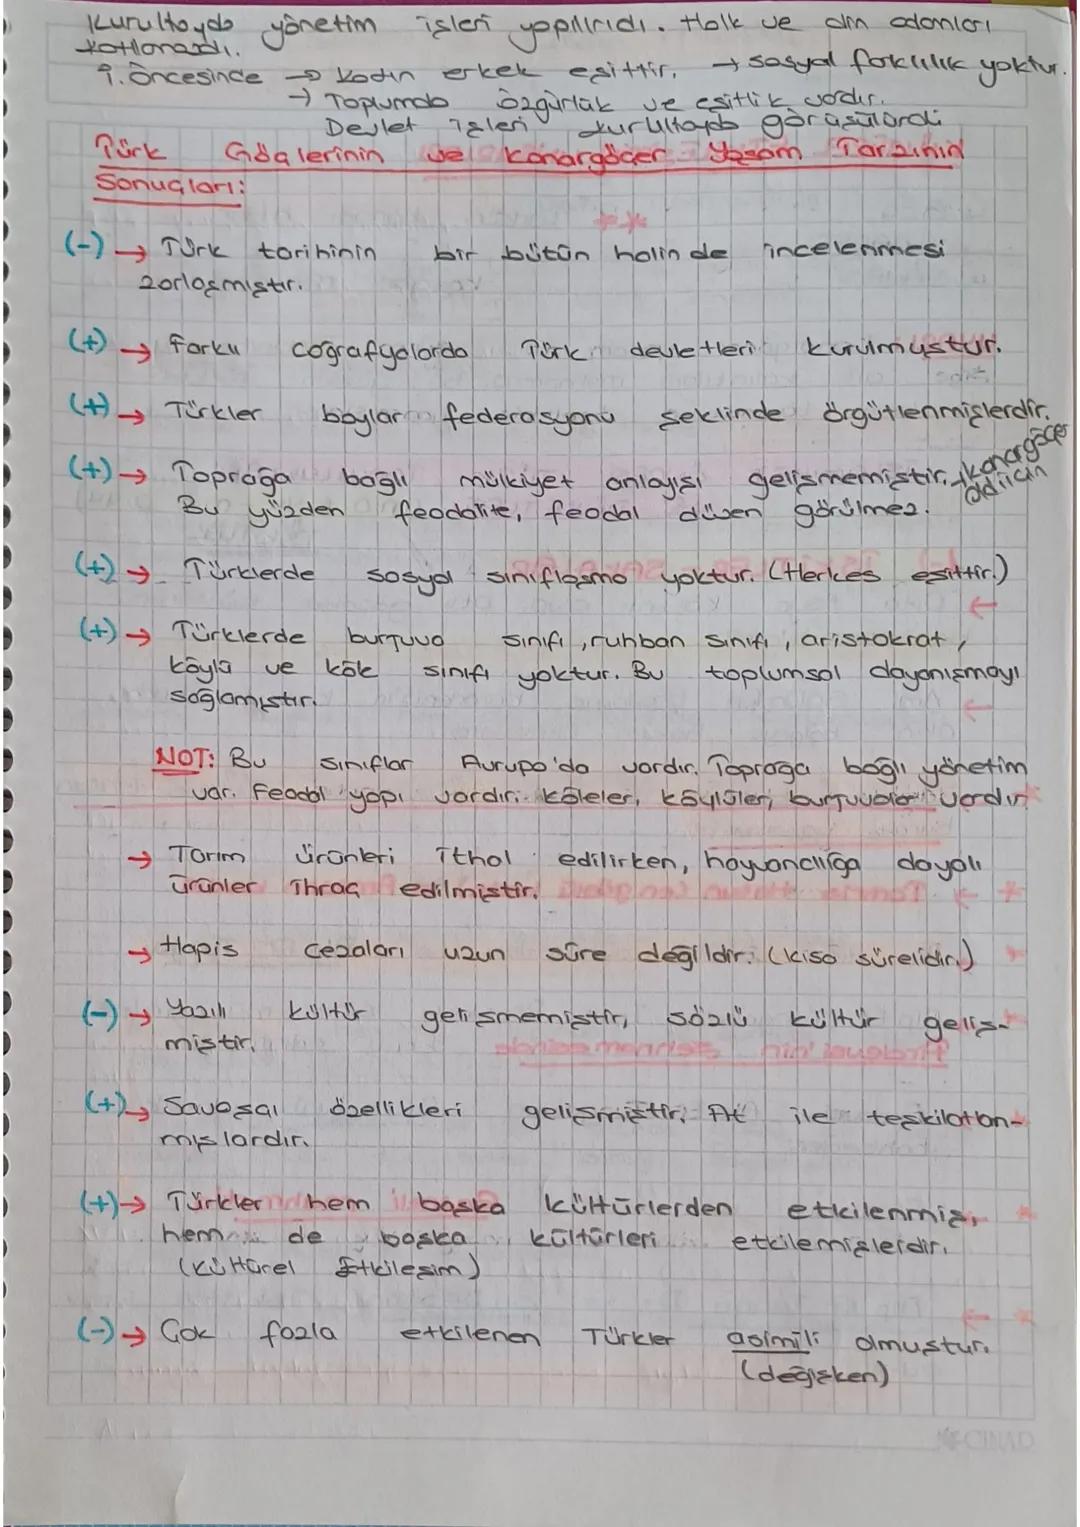 Kurultayda yönetim işleri yapılırdı. Halk ve din adamları
katılamazdı.
İ. Öncesinde → Kadın erkek eşittir. → sosyal farklılık yoktur.
→ Toplumda özgürlük ve eşitlik vardır.
Devlet işleri kurultayda görüşülürdü
Türk Göçlerinin ve Konargöçer Yaşam Tarzının
Sonuçları:
(-) → Türk tarihinin bir bütün halinde incelenmesi
zorlaşmıştır.
(+) → Farklı coğrafyalarda Türk devletleri kurulmuştur.
(+) → Türkler boylar federasyonu şeklinde örgütlenmişlerdir.
(+) → Toprağa bağlı mülkiyet anlayışı gelişmemiştir. → konargöçer
olduğu için
Bu yüzden feodalite, feodal düzen görülmez.
(+) → Türklerde sosyal sınıflaşma yoktur. (Herkes eşittir.)
(+) → Türklerde burjuva sınıfı, ruhban sınıfı, aristokrat,
köylü ve köle sınıfı yoktur. Bu toplumsal dayanışmayı
sağlamıştır.
NOT: Bu sınıflar Avrupa'da vardır. Toprağa bağlı yönetim
var. Feodal yapı vardır. Köleler, köylüler, burjuvalar vardır.
→ Tarım ürünleri ithal edilirken, hayvancılığa dayalı
ürünler ihraç edilmiştir.
→ Hapis cezaları uzun süre değildir. (kısa sürelidir.)
(-) → Yazılı kültür gelişmemiştir, sözlü kültür geliş-
miştir.
(+) → Savaşçı özellikleri gelişmiştir. At ile teşkilatlan-
mışlardır.
(+) → Türkler hem başka kültürlerden etkilenmiş,
hem de başka kültürleri etkilemişlerdir.
(Kültürel Etkileşim)
(-) → Çok fazla etkilenen Türkler asimili olmuştur.
(değişken)